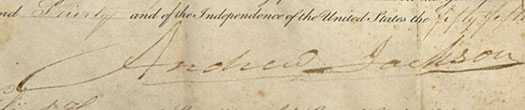 nd Thirty and of the Independence of the United States the fifty fifth
Andrew Jackson